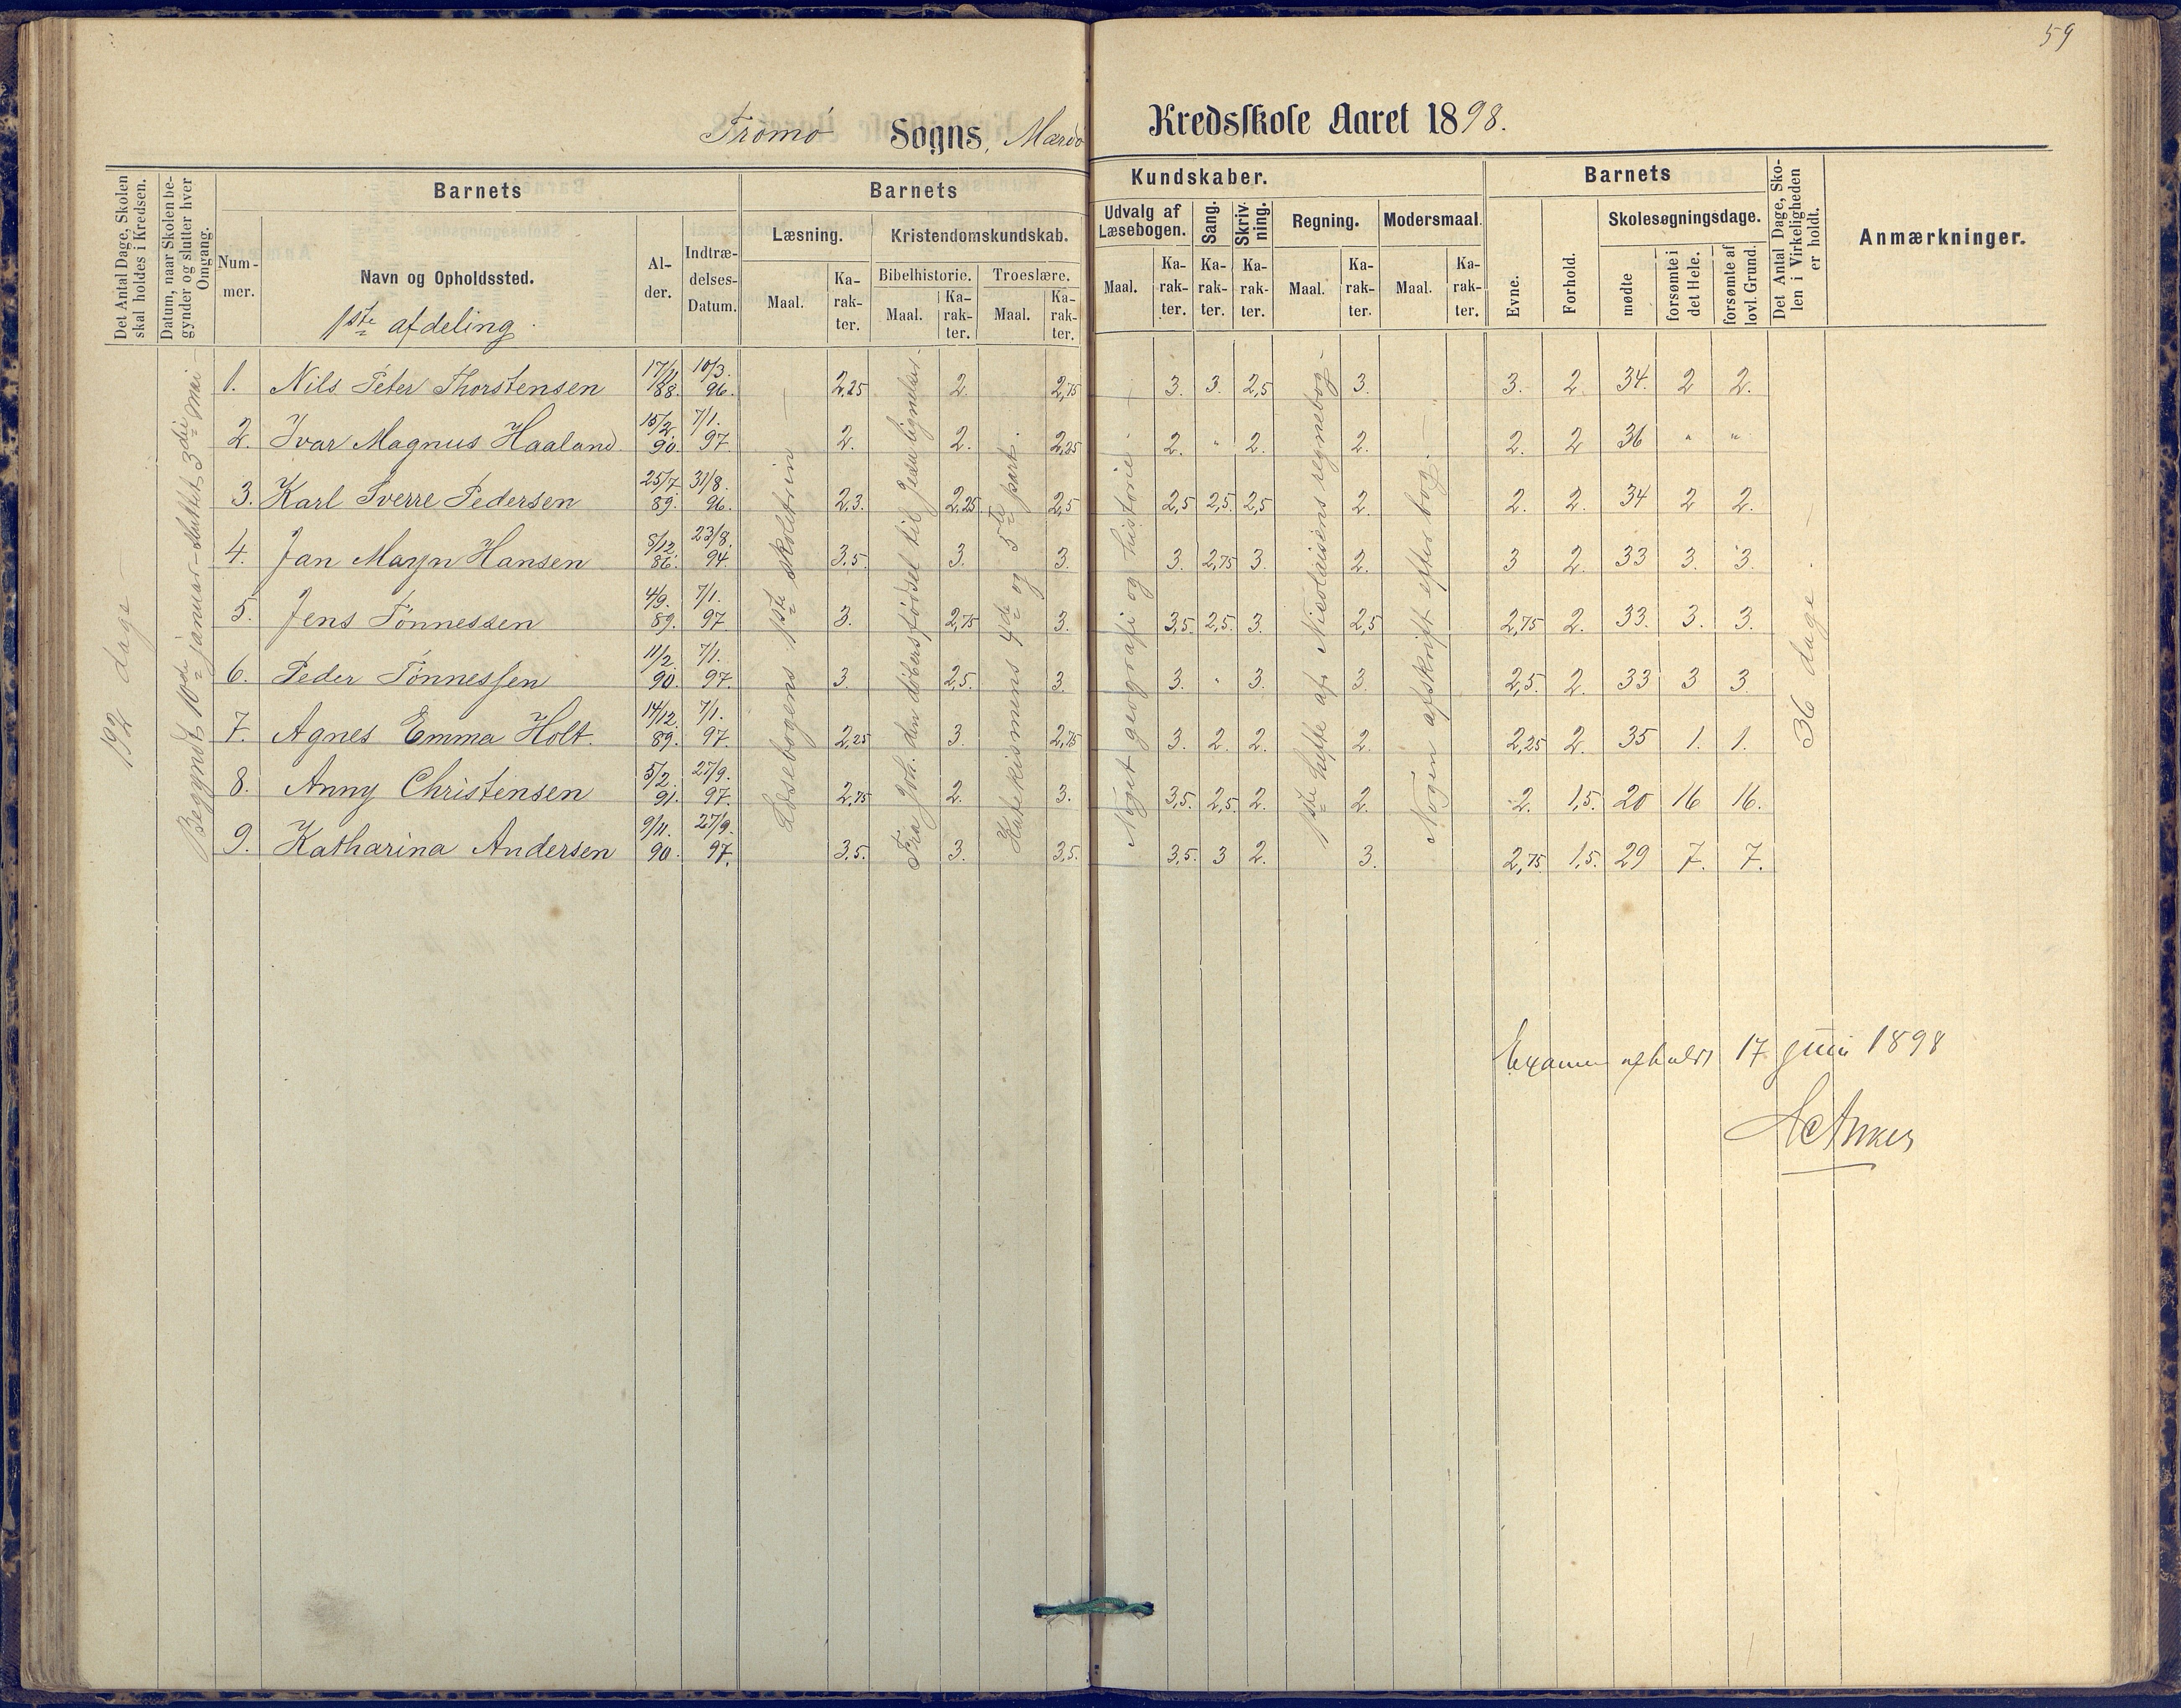 59
Tromø Sogns, Mærdø Kredsskole Aaret 1898.
Det Antal Dage, Skolen skal holdes i Kredsen.
Datum, naar Skolen begynder og slutter hver Omgang.
Barnets
Num-mer.
Navn og Opholdssted.
1ste afdeling.
Al-der.
Indtræ-delses-Datum.
Barnets Kundskaber.
Læsning.
Maal.
Ka-rak-ter.
Kristendomskundskab.
Bibelhistorie.
Maal.
Ka-rak-ter.
Troeslære.
Maal.
Ka-rak-ter.
Udvalg af Læsebogen.
Maal.
Ka-rak-ter.
Sang.
Ka-rak-ter.
Skriv-ning.
Ka-rak-ter.
Regning.
Maal.
Ka-rak-ter.
Modersmaal.
Maal.
Ka-rak-ter.
Barnets
Evne.
Forhold.
Skolesøgningsdage.
mødte
forsømte i det Hele.
forsømte af lovl. Grund.
Det Antal Dage, Skolen i Virkeligheden er holdt.
Anmærkninger.
192 dage
Begyndt 10de januar - sluttet 3die mai
Læsebogens 1ste skoletrin
Fra Joh. den døbers fødsel til Jesu lignelser.
Katekismens 4de og 5te part.
Noget geografi og historie
1ste hefte af Nicolaisens regnebog
Nogen afskrift efter bog.
36 dage.
1. Nils Peter Thorstensen 17/11 88. 10/3. 96. 2,25 2. 2,75 3. 3. 2,5 3. 3. 2. 34. 2 2.
2. Ivar Magnus Haaland 15/2. 90. 7/1. 97. 2. 2. 2,25 2. " 2. 2. 2. 2 36 " "
3. Karl Sverre Pedersen 25/7. 89. 31/8. 96. 2,3. 2,25 2,5 2,5 2,5 2,5 2. 2. 2. 34 2 2.
4. Jan Maryn Hansen 8/12. 86. 23/8. 94. 3,5. 3. 3. 3. 2,75 3. 2. 3 2. 33 3. 3.
5. Jens Tønnessen 4/9. 89. 7/1. 97 3. 2,75 3. 3,5. 2,5. 3. 2,5 2,75 2. 33. 3. 3.
6. Peder Tønnessen 11/2. 90. 7/1. 97. 3. 2,5. 3. 3. " 3. 3. 2,5. 2. 33 3 3.
7. Agnes Emma Holt. 14/12. 89. 7/1. 97. 2,25 3. 2,75 3. 2. 2. 2. 2,25 2. 35 1. 1.
8. Anny Christensen 5/2. 91. 27/9. 97. 2,75 2. 3. 3,5. 2,5. 2. 2. 2. 1,5. 20 16 16.
9. Katharina Andersen 9/11. 90. 27/9. 97. 3,5. 3. 3,5. 3,5. 3 2. 3. 2,75 1,5. 29 7. 7.
Examen afholdt 17 juni 1898